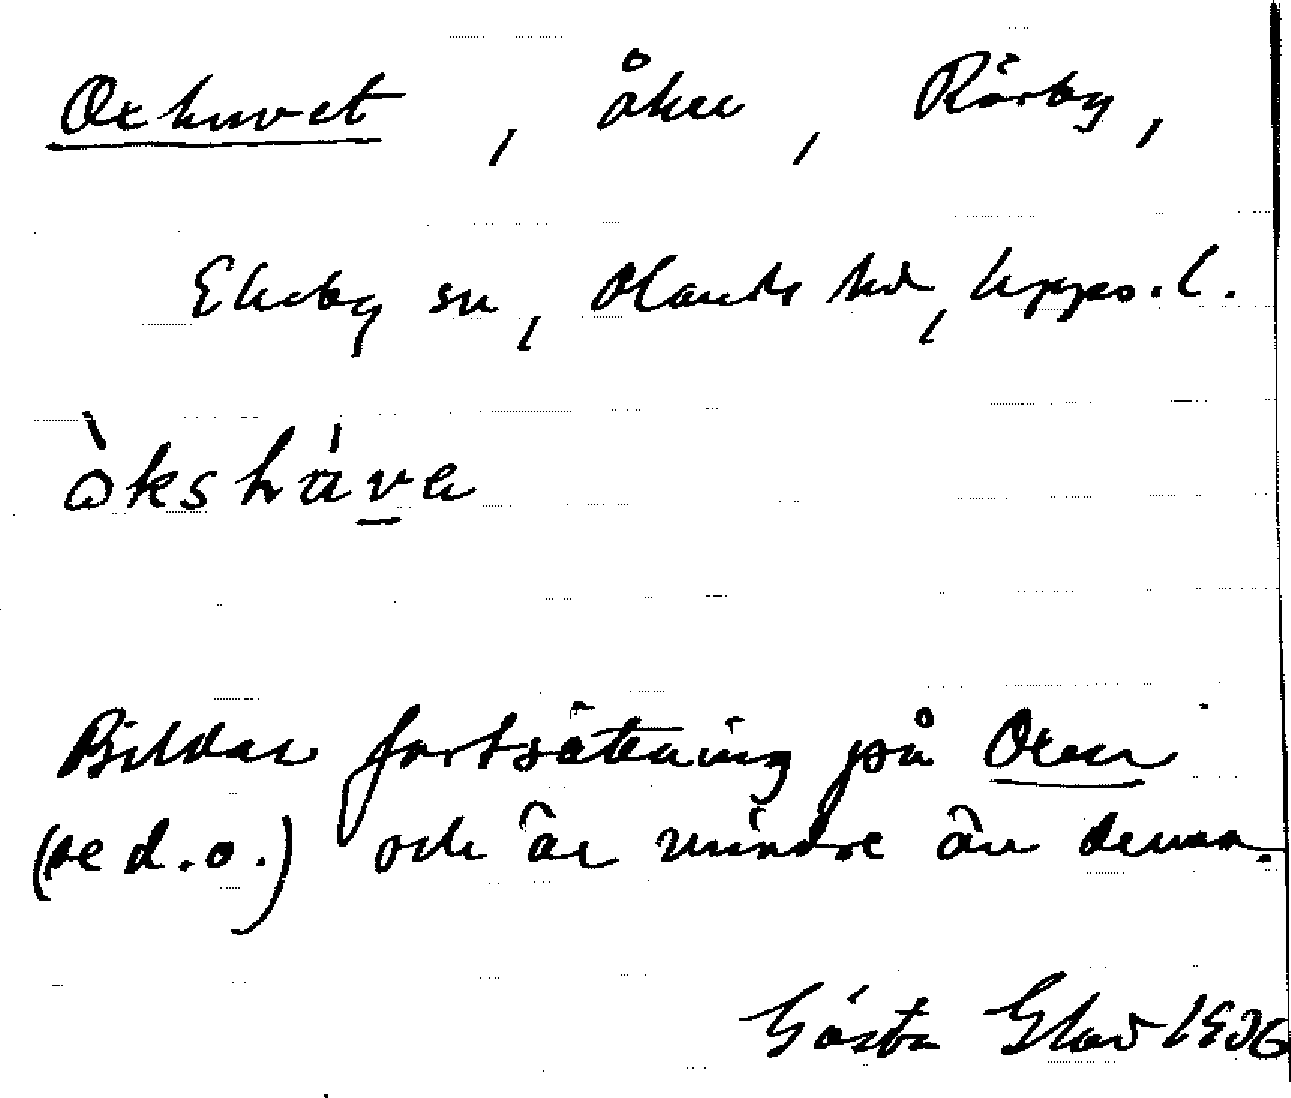 Oxhuvet, åker, Rörby,
Ekeby sn, Olands hd, Upps. l.
òkshú̀ve
Bildar fortsättning på Oxen
(se d. o.) och är mindre än denna.
Gösta Glad 1936